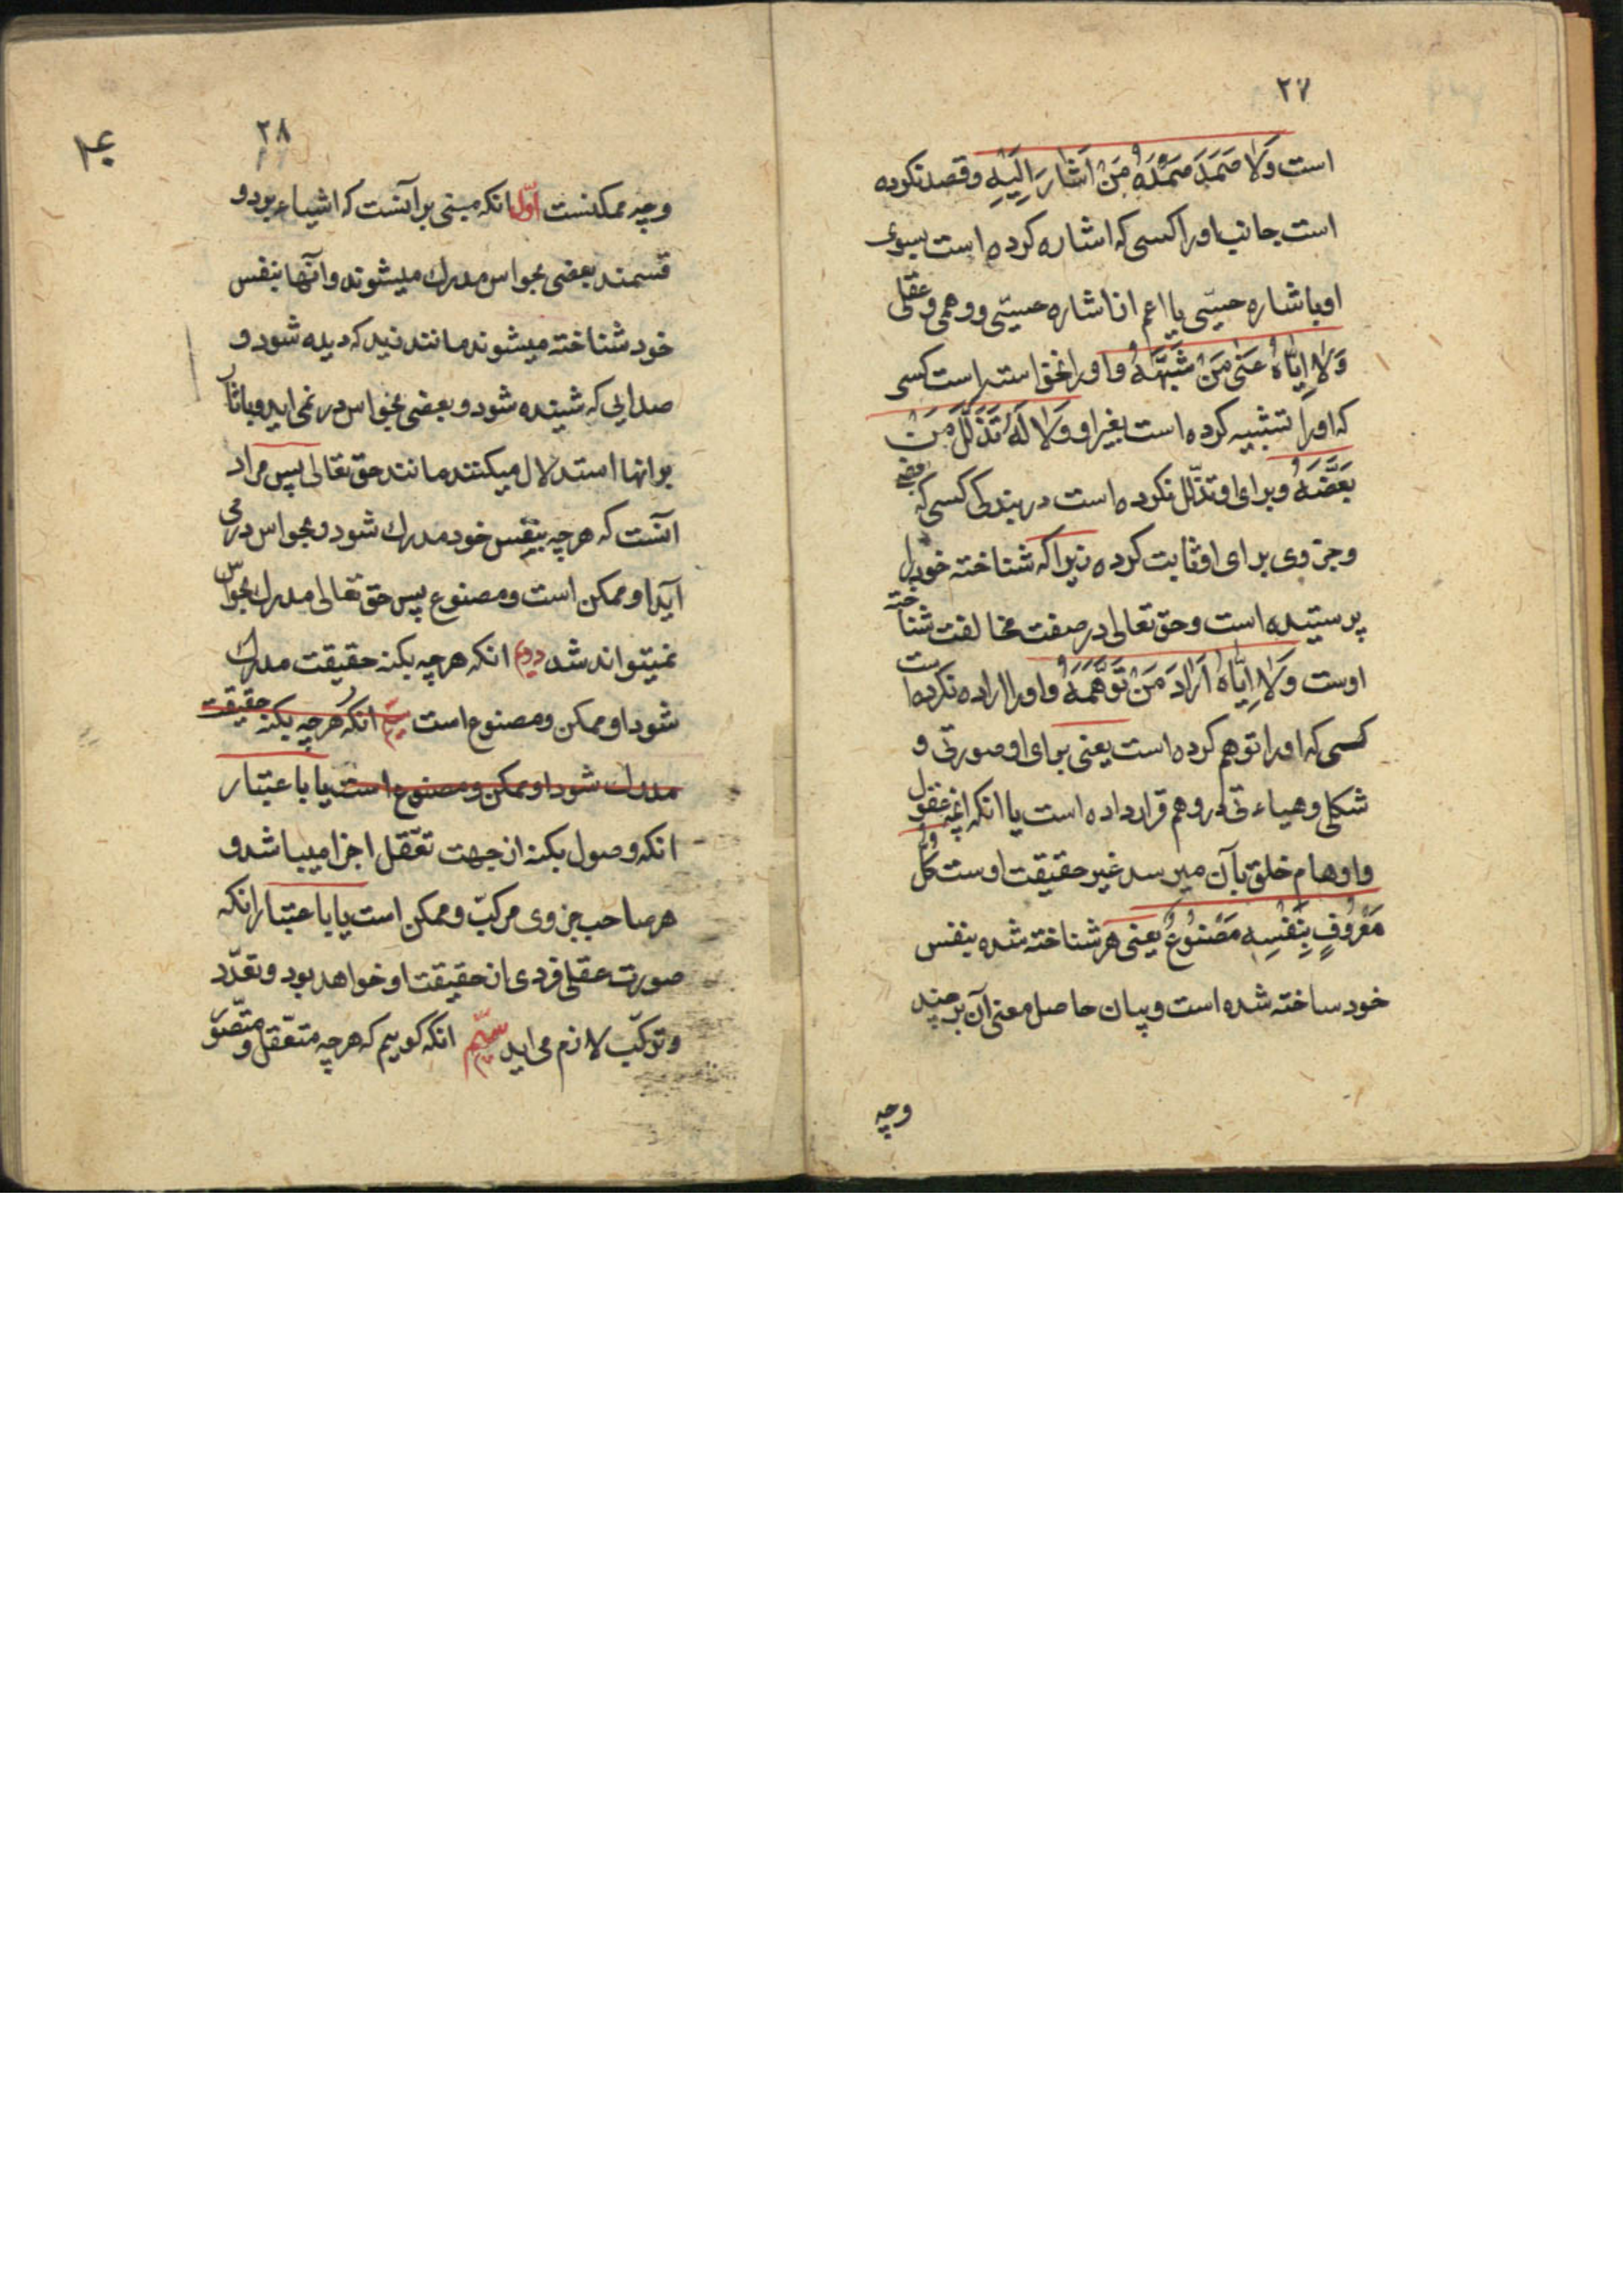 ۲۷
است وَلَا صَمَدَ صَمْدَهُ مَنْ اَشَارَ اِلَیْهِ و قصد نکرده
است جانب او را کسی که اشاره کرده است بسوی
او باشاره حسّی یا اعم از اشاره حسّی و وهمی و عقلی
وَلَا اِیَّاهُ عَنٰی مَنْ شَبَّهَهُ و او را نخواسته است کسی
که او را تشبیه کرده است بغیر او وَلَا لَهُ تَذَلَّلَ مَنْ
بَعَّضَهُ و برای او تذلّل نکرده است در بندکی کسی که بعضی
و جزوی برای او ثابت کرده زیرا که شناخته خود را
پرستیده است و حق تعالی در صفت مخالفت شناخته
اوست وَلَا اِیَّاهُ اَرَادَ مَنْ تَوَهَّمَهُ و او را اراده نکرده است
کسی که او را توهم کرده است یعنی برای او صورتی و
شکلی و هیاءتی در وهم قرار داده است یا انکه انچه عقول
و اوهام خلق بآن میرسد غیر حقیقت اوست کُلُّ
مَعْرُوفٍ بِنَفْسِهِ مَصْنُوعٌ یعنی هر شناخته شده بنفس
خود ساخته شده است و بیان حاصل معنی آن بر چند
وجه
۲۸
وجه ممکنست اوّل انکه مبنی بر آنست که اشیاء بر دو
قسمند بعضی بحواس مدرک میشوند و انّها بنفس
خود شناخته میشوند مانند زید که دیده شود و
صدایی که شنیده شود و بعضی بحواس در نمی اید و باثار
بر انها استدلال میکنند مانند حق تعالی پس مراد
آنست که هر چه بنفس خود مدرک شود و بحواس در می
آید او ممکن است و مصنوع پس حق تعالی مدرک بحواس
نمیتواند شد دویم انکه هر چه بکنه حقیقت مدرک
شود او ممکن و مصنوع است انکه هر چه بکنه حقیقت
مدرک شود او ممکن و مصنوع است یا باعتبار
انکه وصول بکنه از جهت تعّقل اجزا میباشد و
هر صاحب جزوی مرکبّ و ممکن است یا باعتبار انکه
صورت عقلی فردی از حقیقت او خواهد بود و تعدّد
و ترکّب لازم می اید سیّم انکه کوییم که هر چه متعّقل و متصّور